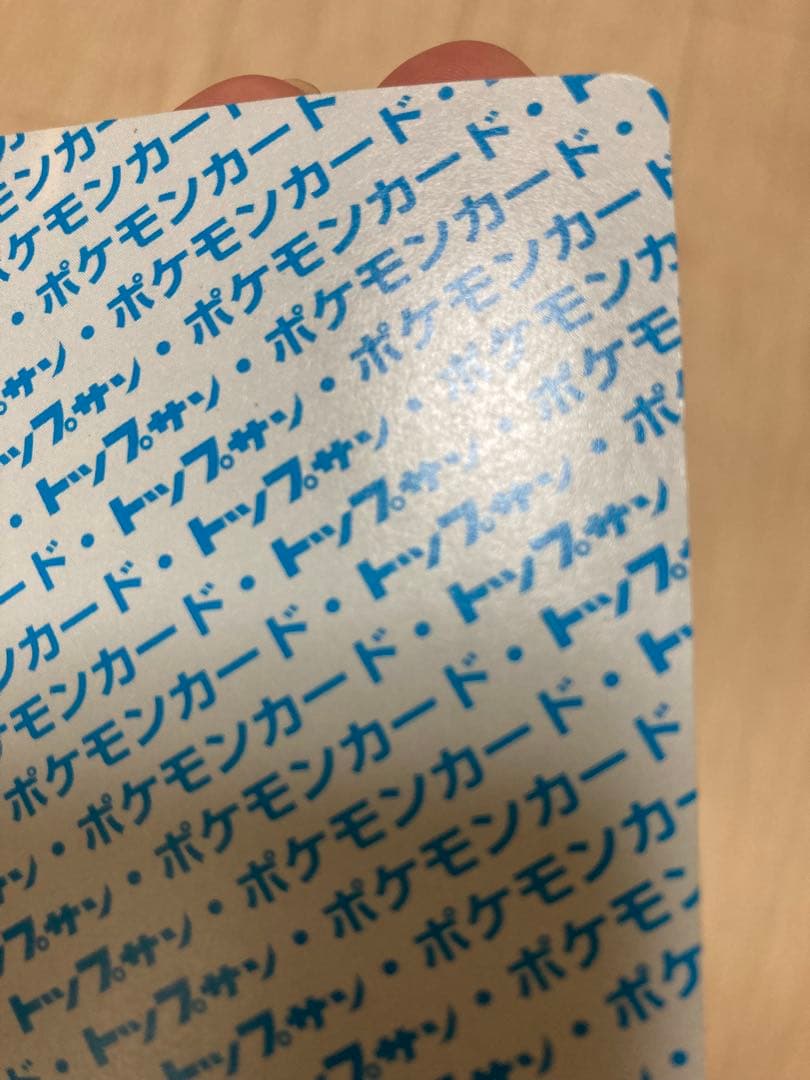 モンカー
ポケモンカード
・ポケモンカード・
サン・ポケモンカード・ト
ップサン・ポケモンカード・
・トップサン・ポケモンカード
ード・トップサン・ポケモンカ
ンカード・トップサン・ポケモン
ケモンカード・トップサン・ポケモ
ポケモンカード・トップサン・ポ
・ポケモンカード・トップサン
サン・ポケモンカード・トップ
プサン・ポケモンカード・ト
トップサン・ポケモンカード
・トップサン・ポケモンカ
ド・トップサン・ポケモン
トップサン・ポケ